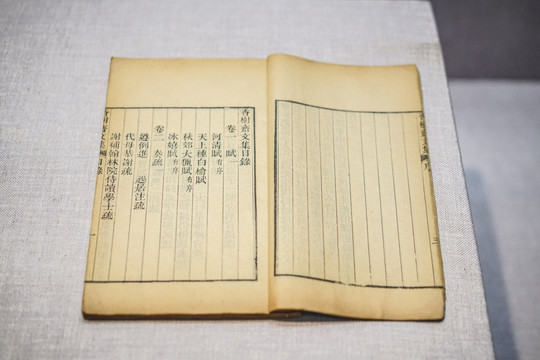 香樹齋文集目錄
卷一 賦
河清賦有序
天上種白榆賦
秋郊大賦有序
冰嬉賦有序
卷二 奏疏
遵例進 起居注疏
代母恭謝疏
謝補翰林院侍讀學士疏
香樹齋文集 目錄